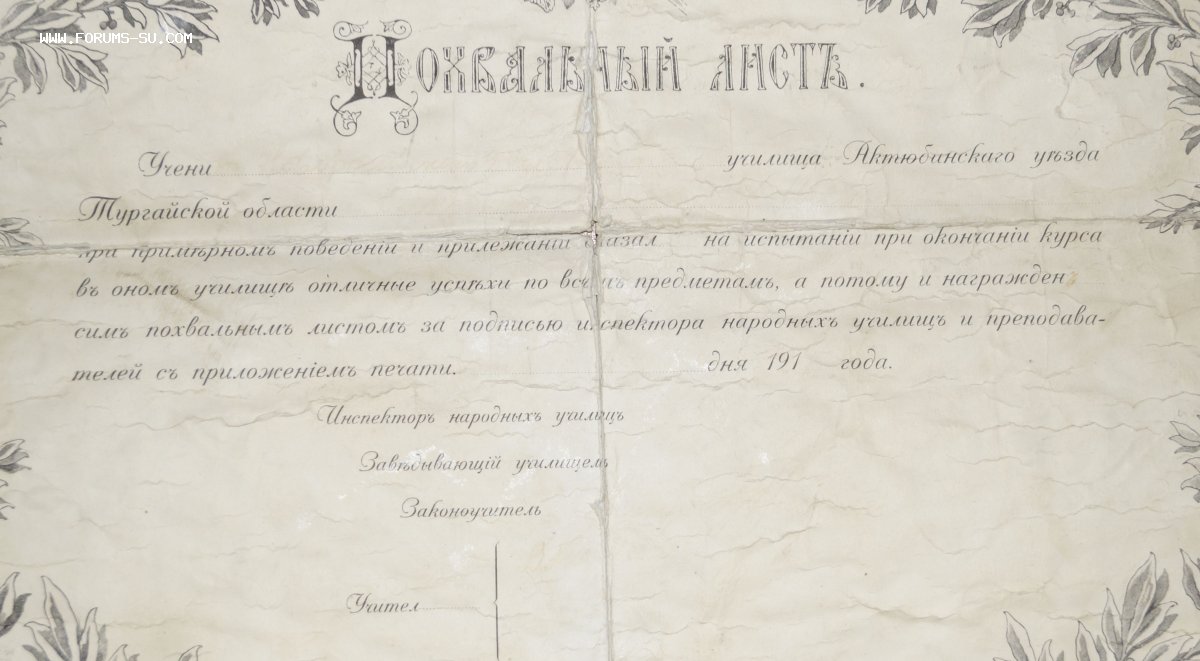 WWW.FORUMS-SU.COM
Похвальный листъ.
Учени училища Актюбинскаго уѣзда
Тургайской области
при примѣрномъ поведеніи и прилежаніи оказал на испытаніи при окончаніи курса
въ ономъ училищѣ отличные успѣхи по всѣмъ предметамъ, а потому и награжден
симъ похвальнымъ листомъ за подписью инспектора народныхъ училищъ и преподава-
телей съ приложеніемъ печати. дня 191 года.
Инспекторъ народныхъ училищъ
Завѣдывающій училищемъ
Законоучитель
Учител